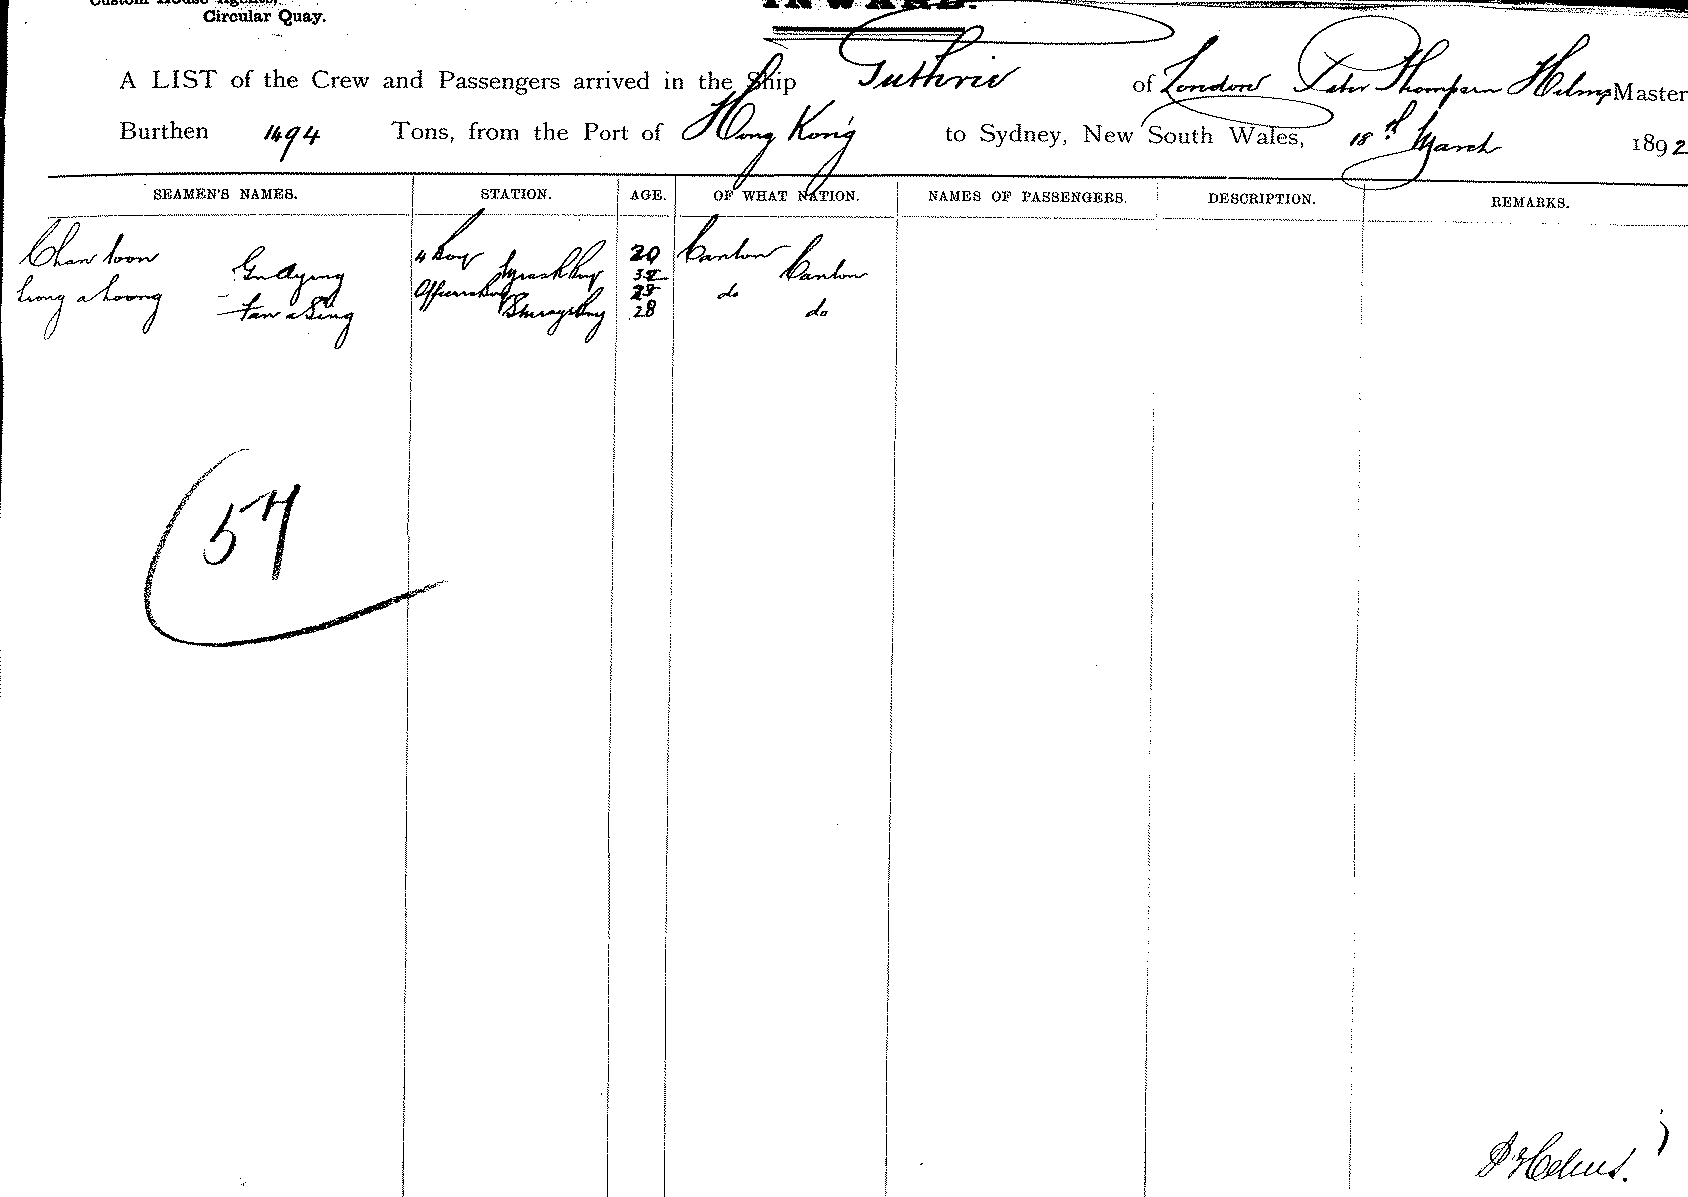 Custom House Agents,
Circular Quay.
INWARD.
A LIST of the Crew and Passengers arrived in the Ship Guthrie of London Peter Thompson Helms Master
Burthen 1494 Tons, from the Port of Hong Kong to Sydney, New South Wales, 18th March 1892
SEAMEN'S NAMES. STATION. AGE. OF WHAT NATION. NAMES OF PASSENGERS. DESCRIPTION. REMARKS.
Chan toon " Boy 20 Canton
Canton
a Officers Boy do
a Sing 28 do
57
Helms.